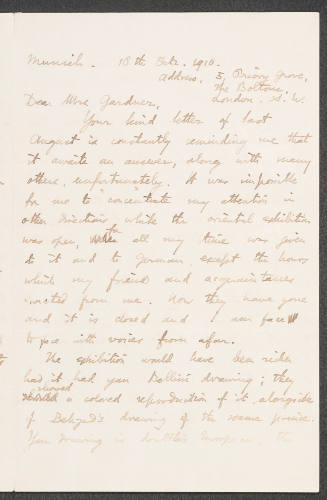 Munich. 18th Oct. 1910.
Address, 3, Priory Grove,
The Boltons,
London. S. W.
Dear Mrs Gardner,
Your kind letter of last
August is constantly reminding me that
it awaits an answer, along with many
others, unfortunately. It was impossible
for me to concentrate my attention in
other directions while the oriental exhibition
was open, for all my time was given
to it and to German, except the hours
which my friends and acquaintances
exacted from me. Now they have gone
and it is closed and I am free
to with voices from afar.
The exhibition would have been richer
had it had your Bellini drawing; they
showed a colored reproduction of it alongside
of Behzad's drawing of the same prince.
Your drawing is doubtless European, the